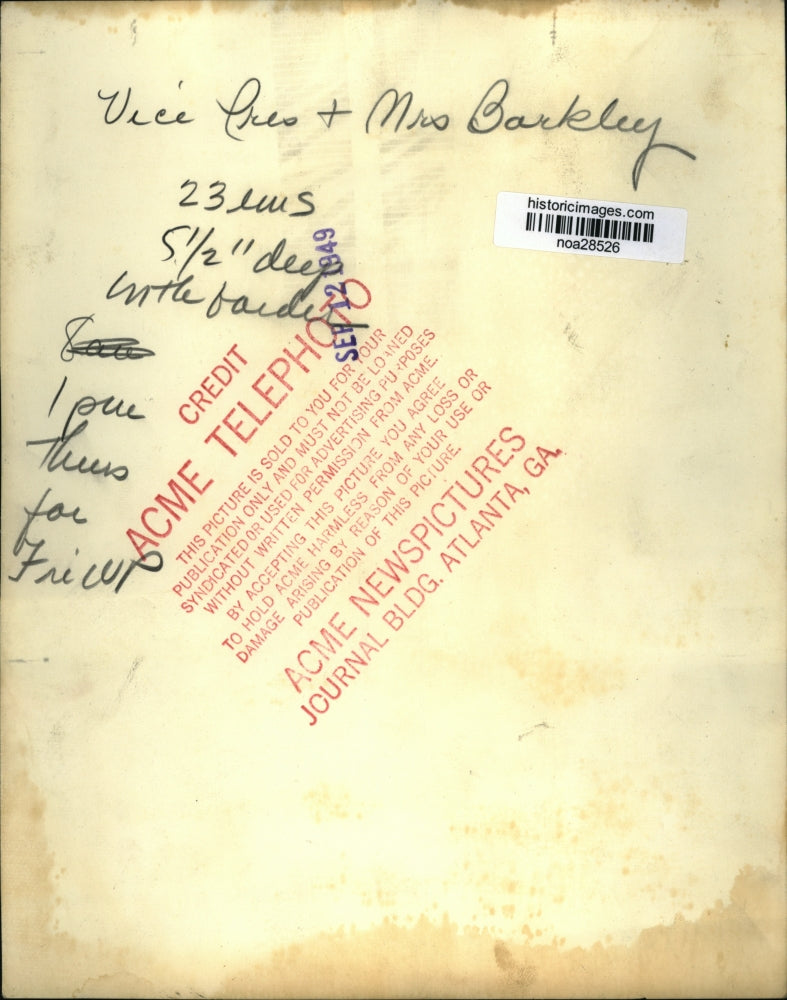 Vice Pres + Mrs Barkley
historicimages.com
noa28526
23 ems
5 1/2" deep
with border
SEP 12 1949
1 pm
Thurs
for
Fri WP
CREDIT
ACME TELEPHOTO
THIS PICTURE IS SOLD TO YOU FOR YOUR
PUBLICATION ONLY AND MUST NOT BE LOANED
SYNDICATED OR USED FOR ADVERTISING PURPOSES
WITHOUT WRITTEN PERMISSION FROM ACME.
BY ACCEPTING THIS PICTURE YOU AGREE
TO HOLD ACME HARMLESS FROM ANY LOSS OR
DAMAGE ARISING BY REASON OF YOUR USE OR
PUBLICATION OF THIS PICTURE.
ACME NEWSPICTURES
JOURNAL BLDG. ATLANTA, GA.